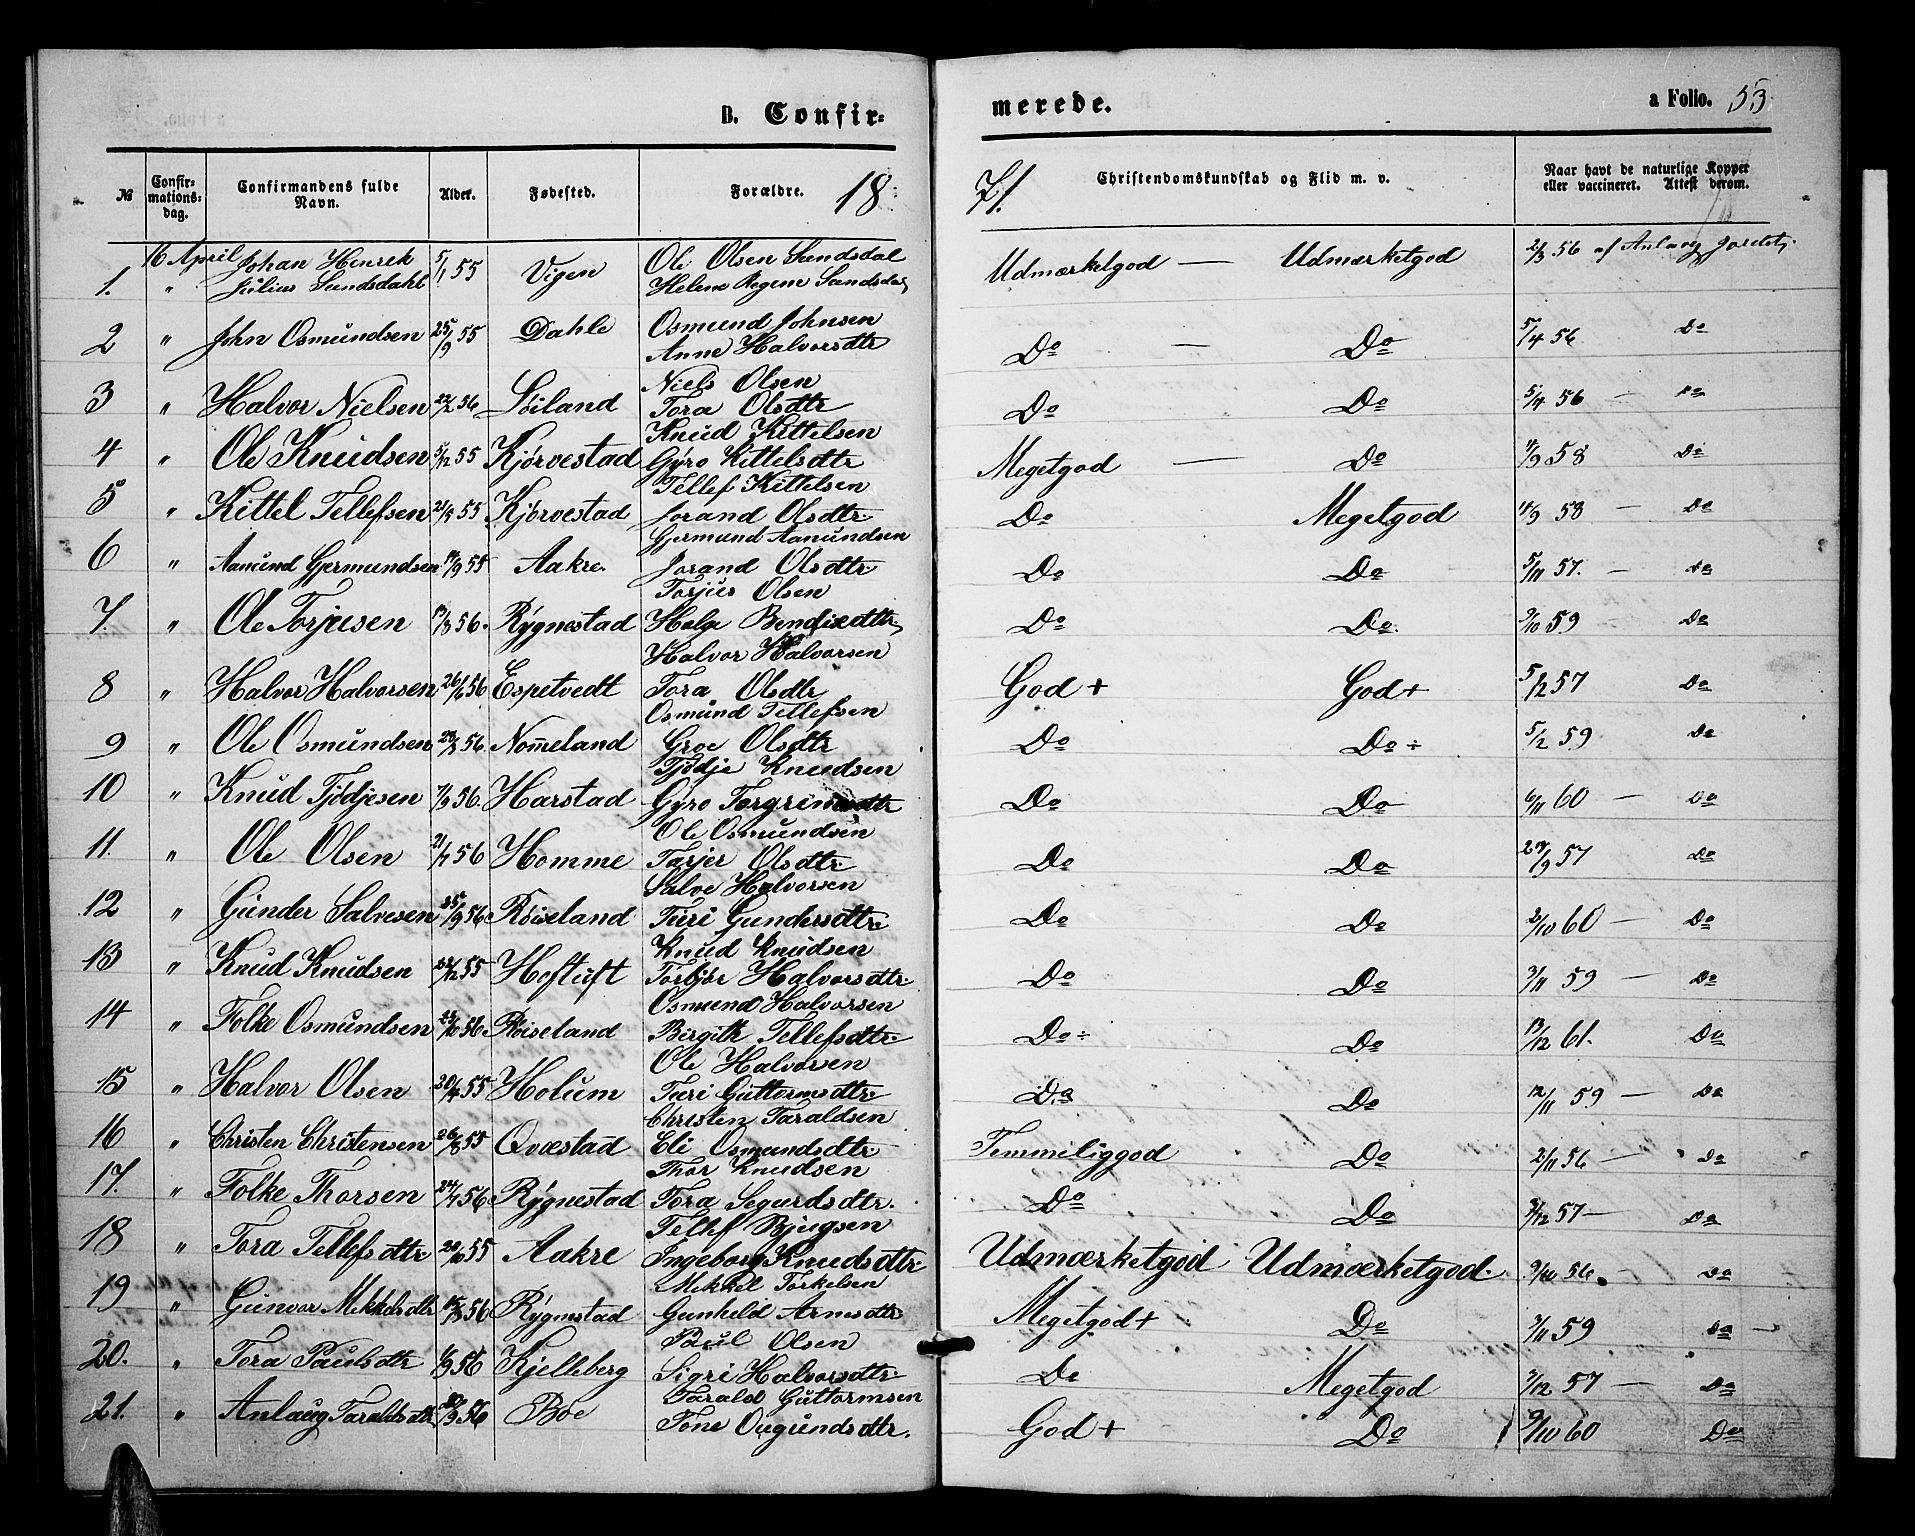 B. Confir- merede. a Folio. 53.
№ Confir-mations-dag. Confirmandens fulde Navn. Alder. Fødested. Forældre. 18 71. Christendomskundskab og Flid m. v. Naar havt de naturlige Kopper eller vaccineret. Attest derom.
16 April Johan Henrik 5/1 55 Vigen Ole Olsen Sundsdal Udmærketgod — Udmærketgod 2/3 56 af Anlaug
1. " Julius Sundsdahl Helene Regine
2 " John Osmundsen 25/9 55 Dahle Osmund Johnsen Do — Do 5/4 56 Do
Anne Halvorsdtr
3 " Halvor Nielsen 22/2 56 Løiland Niels Olsen Do Do 5/4 56 — Do
Tora Olsdtr
4 " Ole Knudsen 5/12 55 Kjørvestad Knud Kittelsen Megetgod — Do 11/9 58 Do
Gyro Kittelsdtr
5 " Kittel Tellefsen 21/5 55 Kjørvestad Tellef Kittelsen Do Megetgod 11/9 58 — Do
Jorand Olsdtr.
6 " Aamund Gjermundsen /9 55 Aakre. Gjermund Aamundsen Do Do 5/11 57. — Do
Jorand Olsdtr.
7 " Ole Torjusen /8 56. Rygnestad Torjus Olsen Do Do. 3/10 59 Do
Helge Bendixdtr.
8 " Halvor Halvorsen 26/6 56 Espetvedt Halvor Halvorsen God + God + 5/12 57 Do
Tora Olsdtr
9 " Ole Osmundsen 56. Nomeland Osmund Tellefsen Do Do ÷ 5/2 59 Do
Groe Olsdtr
10 " Knud Tjödjesen 7/9 56. Harstad Tjödje Knudsen Do Do 6/11 60 — Do
Gyro Torgrimsdtr
11. " Ole Olsen 21/7 56 Homme Ole Osmundsen Do Do 29/9 57 Do
Tarjer Olsdtr.
12 " Gunder Salvesen 25/9 56 Røiseland Salve Halvorsen Do Do 2/10 60 — Do
Turi Gundersdtr.
13 " Knud Knudsen 22/12 55 Hoftuft Knud Knudsen Do Do 3/11 59 — Do
Torbjør Halvorsdtr.
14 " Folke Osmundsen 56 Røiseland Osmund Halvorsen Do ÷ Do 13/12 61. Do
Birgith Tellefsdtr.
15 " Halvor Olsen 20/4 55 Holum Ole Halvorsen Do Do 12/11 59 — Do
Turi Guttormsdtr.
16 " Christen Christensen 26/8 55 Qvæstad Christen Taraldsen Temmeliggod Do 2/11 56 — Do
Eli Osmundsdtr.
17. " Folke Thorsen 24/7 56 Rygnestad Thor Knudsen Do Do 3/12 57 — Do
Tora Segurdsdtr.
18 " Tora Tellefsdtr 55 Aakre Tellef Bjugsen Udmærketgod Udmærketgod. 9/10 56. Do
Ingeborg Knudsdtr.
19 " Gunvor Mikkelsdtr 56 Rygnestad Mikkel Torkelsen Megetgod + Do 3/11 59 Do —
Gunhild Arnesdtr.
20. " Tora Paulsdtr 56 Kjelleberg Paul Olsen Do Megetgod 3/12 57 — Do
Sigri Halvorsdtr.
21. " Anlaug Taraldsdtr 56 Boe Tarald Guttormsen God + Do 9/10 60 Do
Tone Ougundsdtr.